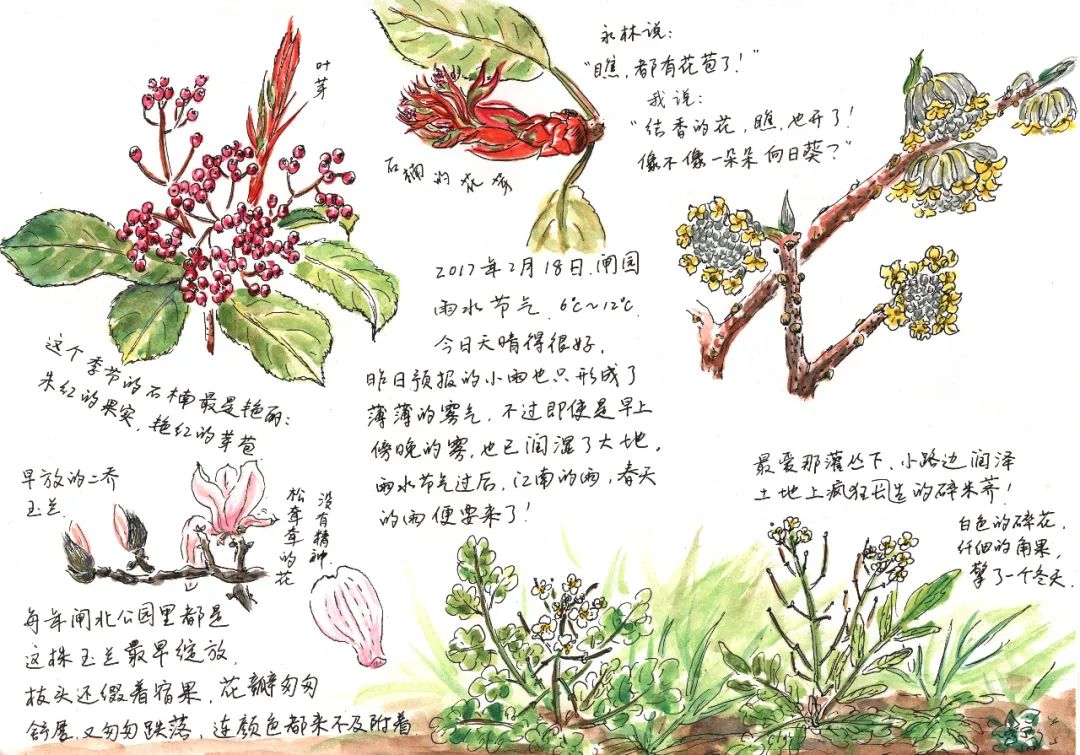 叶芽
石楠的花序
永林说：
“瞧，都有花苞了！”
我说：
“结香的花，瞧，也开了！
像不像一朵朵向日葵？”
2017年2月18日.闸园
雨水节气. 6℃~12℃.
今日天晴得很好，
昨日预报的小雨也只形成了
薄薄的雾气，不过即使是早上
傍晚的雾，也已润湿了大地。
雨水节气过后，江南的雨，春天
的雨便要来了！
这个季节的石楠最是艳丽：
朱红的果实，艳红的芽苞
早放的二乔
玉兰.
没有精神
松耷耷的花
每年闸北公园里都是
这株玉兰最早绽放，
枝头还假着宿果，花瓣匆匆
舒展又匆匆跌落，连颜色都来不及附着
最爱那灌丛下、小路边润泽
土地上疯狂生的碎米荠！
白色的碎花，
仟细的角果，
擎了一个冬天.